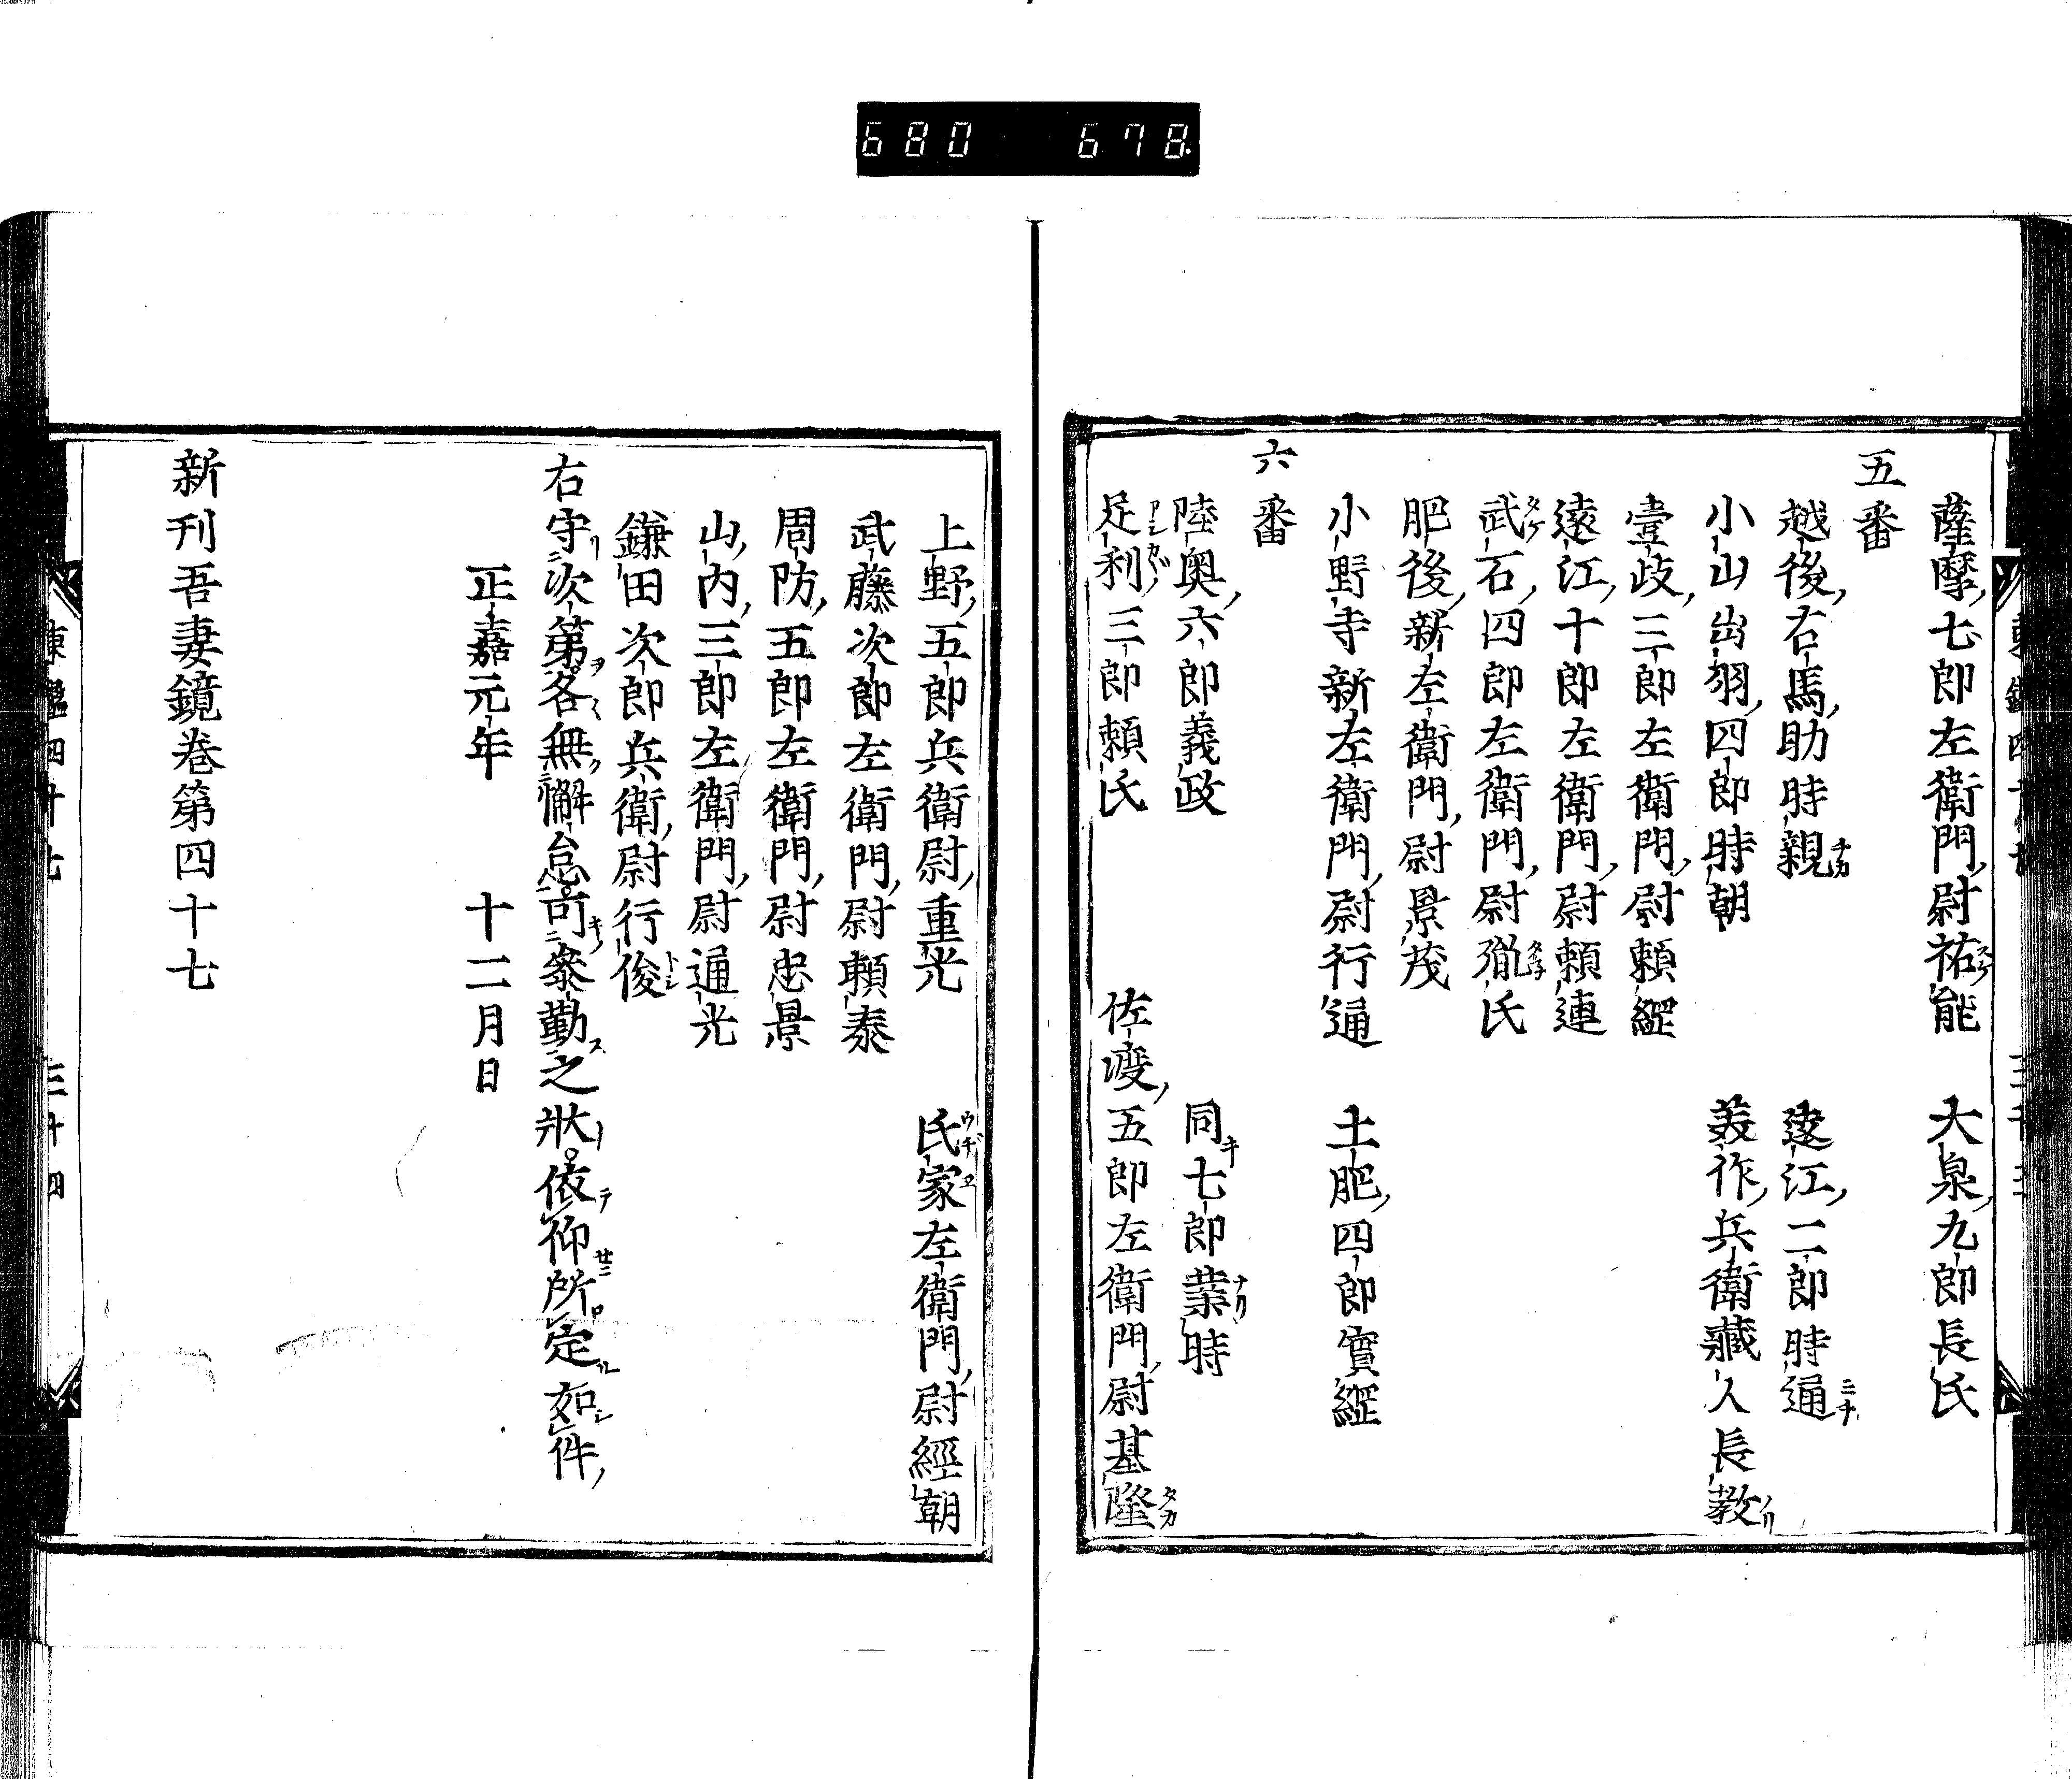 680 678
薩摩七郎左衛門尉祐能 大泉九郎長氏
五番
越後右馬助時親 遠江二郎時通
小山出羽四郎時朝 美作兵衛藏人長教
壹岐三郎左衛門尉頼經
遠江十郎左衛門尉頼連
武石四郎左衛門尉胤氏
肥後新左衛門尉景茂
小野寺新左衛門尉行通 土肥四郎實經
六番
陸奥六郎義政 同七郎業時
足利三郎頼氏 佐渡五郎左衛門尉基隆
上野五郎兵衛尉重光 氏家左衛門尉經朝
武藤次郎左衛門尉頼泰
周防五郎左衛門尉忠景
山内三郎左衛門尉通光
鎌田次郎兵衛尉行俊
右守次第各無懈怠可参勤之狀依仰所定如件
正嘉元年 十二月日
新刊吾妻鏡卷第四十七
東鑑四十七 三十四